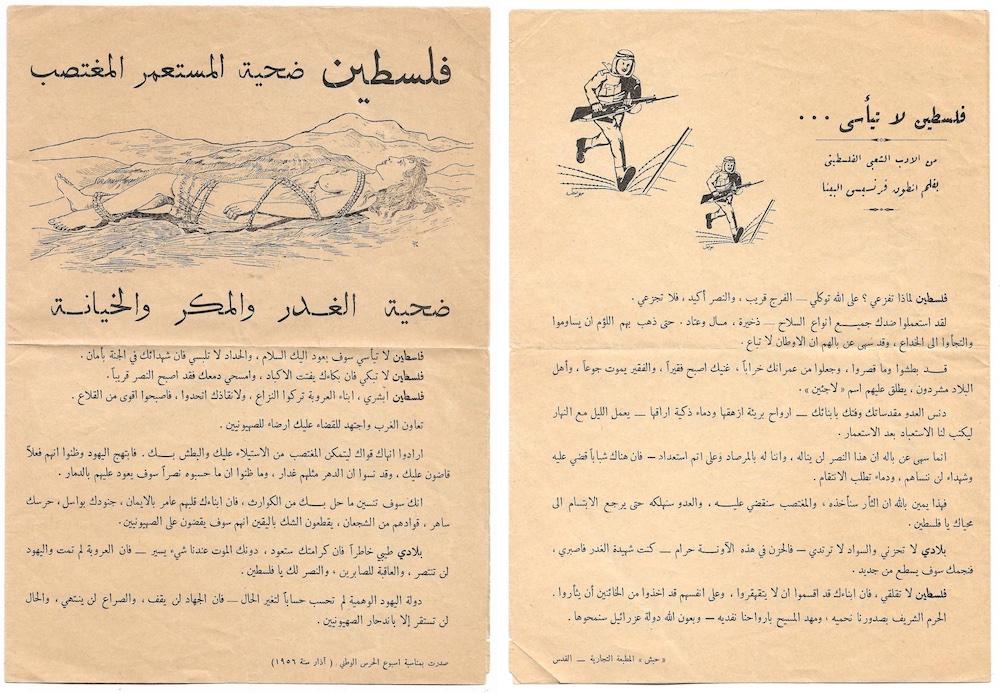 فلسطين ضحية المستعمر المغتصب
ضحية الغدر والمكر والخيانة
فلسطين لا تيأسي سوف يعود اليك السلام ، والحداد لا تلبسي فان شهدائك في الجنة بأمان .
فلسطين لا تبكي فان بكاءك يفتت الاكباد ، وامسحي دمعك فقد اصبح النصر قريباً .
فلسطين أبشري ، ابناء العروبة تركوا النزاع ، ولانقاذك اتحدوا ، فاصبحوا اقوى من القلاع .
تعاون الغرب واجتهد للقضاء عليك ارضاء للصهيونيين .
ارادوا انهاك قواك ليتمكن المغتصب من الاستيلاء عليك والبطش بك . فابتهج اليهود وظنوا انهم فعلاً
قاضون عليك ، وقد نسوا ان الدهر مثلهم غدار ، وما ظنوا ان ما حسبوه نصراً سوف يعود عليهم بالدمار .
انك سوف تنسين ما حل بك من الكوارث ، فان ابناءك قلبهم عامر بالايمان ، جنودك بواسل ، حرسك
ساهر ، قوادهم من الشجعان ، يقطعون الشك باليقين انهم سوف يقضون على الصهيونيين .
بلادي طيبي خاطراً فان كرامتك ستعود ، دونك الموت عندنا شيء يسير — فان العروبة لم تمت واليهود
لن تنتصر ، والعاقبة للصابرين ، والنصر لك يا فلسطين .
دولة اليهود الوهمية لم تحسب حساباً لتغير الحال — فان الجهاد لن يقف ، والصراع لن ينتهي ، والحال
لن تستقر إلا باندحار الصهيونيين .
صدرت بمناسبة اسبوع الحرس الوطني ( آذار سنة ١٩٥٦ )
فلسطين لا تيأسي ...
من الادب الشعبي الفلسطيني
بقلم انطون فرنسيس البينا
فلسطين لماذا تفزعي ؟ على الله توكلي — الفرج قريب ، والنصر أكيد ، فلا تجزعي .
لقد استعملوا ضدك جميع انواع السلاح — ذخيرة ، مال وعتاد . حتى ذهب بهم اللؤم ان يساوموا
والتجأوا الى الخداع ، وقد سهى عن بالهم ان الاوطان لا تباع .
قد بطشوا وما قصروا ، وجعلوا من عمرانك خراباً ، غنيك اصبح فقيراً ، والفقير يموت جوعاً ، وأهل
البلاد مشردون ، يطلق عليهم اسم « لاجئين » .
دنس العدو مقدساتك وفتك بابنائك — ارواح بريئة ازهقها ودماء ذكية اراقها — يعمل الليل مع النهار
ليكتب لنا الاستعباد بعد الاستعمار .
انما سهى عن باله ان هذا النصر لن يناله ، واننا له بالمرصاد وعلى اتم استعداد — فان هناك شباباً قضي عليه
وشهداء لن ننساهم ، ودماء تطلب الانتقام .
فهذا يمين بالله ان الثأر سنأخذه ، والمغتصب سنقضي عليه ، والعدو سنهلكه حتى يرجع الابتسام الى
محياك يا فلسطين .
بلادي لا تحزني والسواد لا ترتدي — فالحزن في هذه الآونة حرام — كنت شهيدة الغدر فاصبري ،
فنجمك سوف يسطع من جديد .
فلسطين لا تقلقي ، فان ابناءك قد اقسموا ان لا يتقهقروا ، وعلى انفسهم قد اخذوا من الخائنين أن يثأروا .
الحرم الشريف بصدورنا نحميه ، ومهد المسيح بارواحنا نفديه — وبعون الله دولة عزرائيل سنمحوها .
« حبش » المطبعة التجارية — القدس